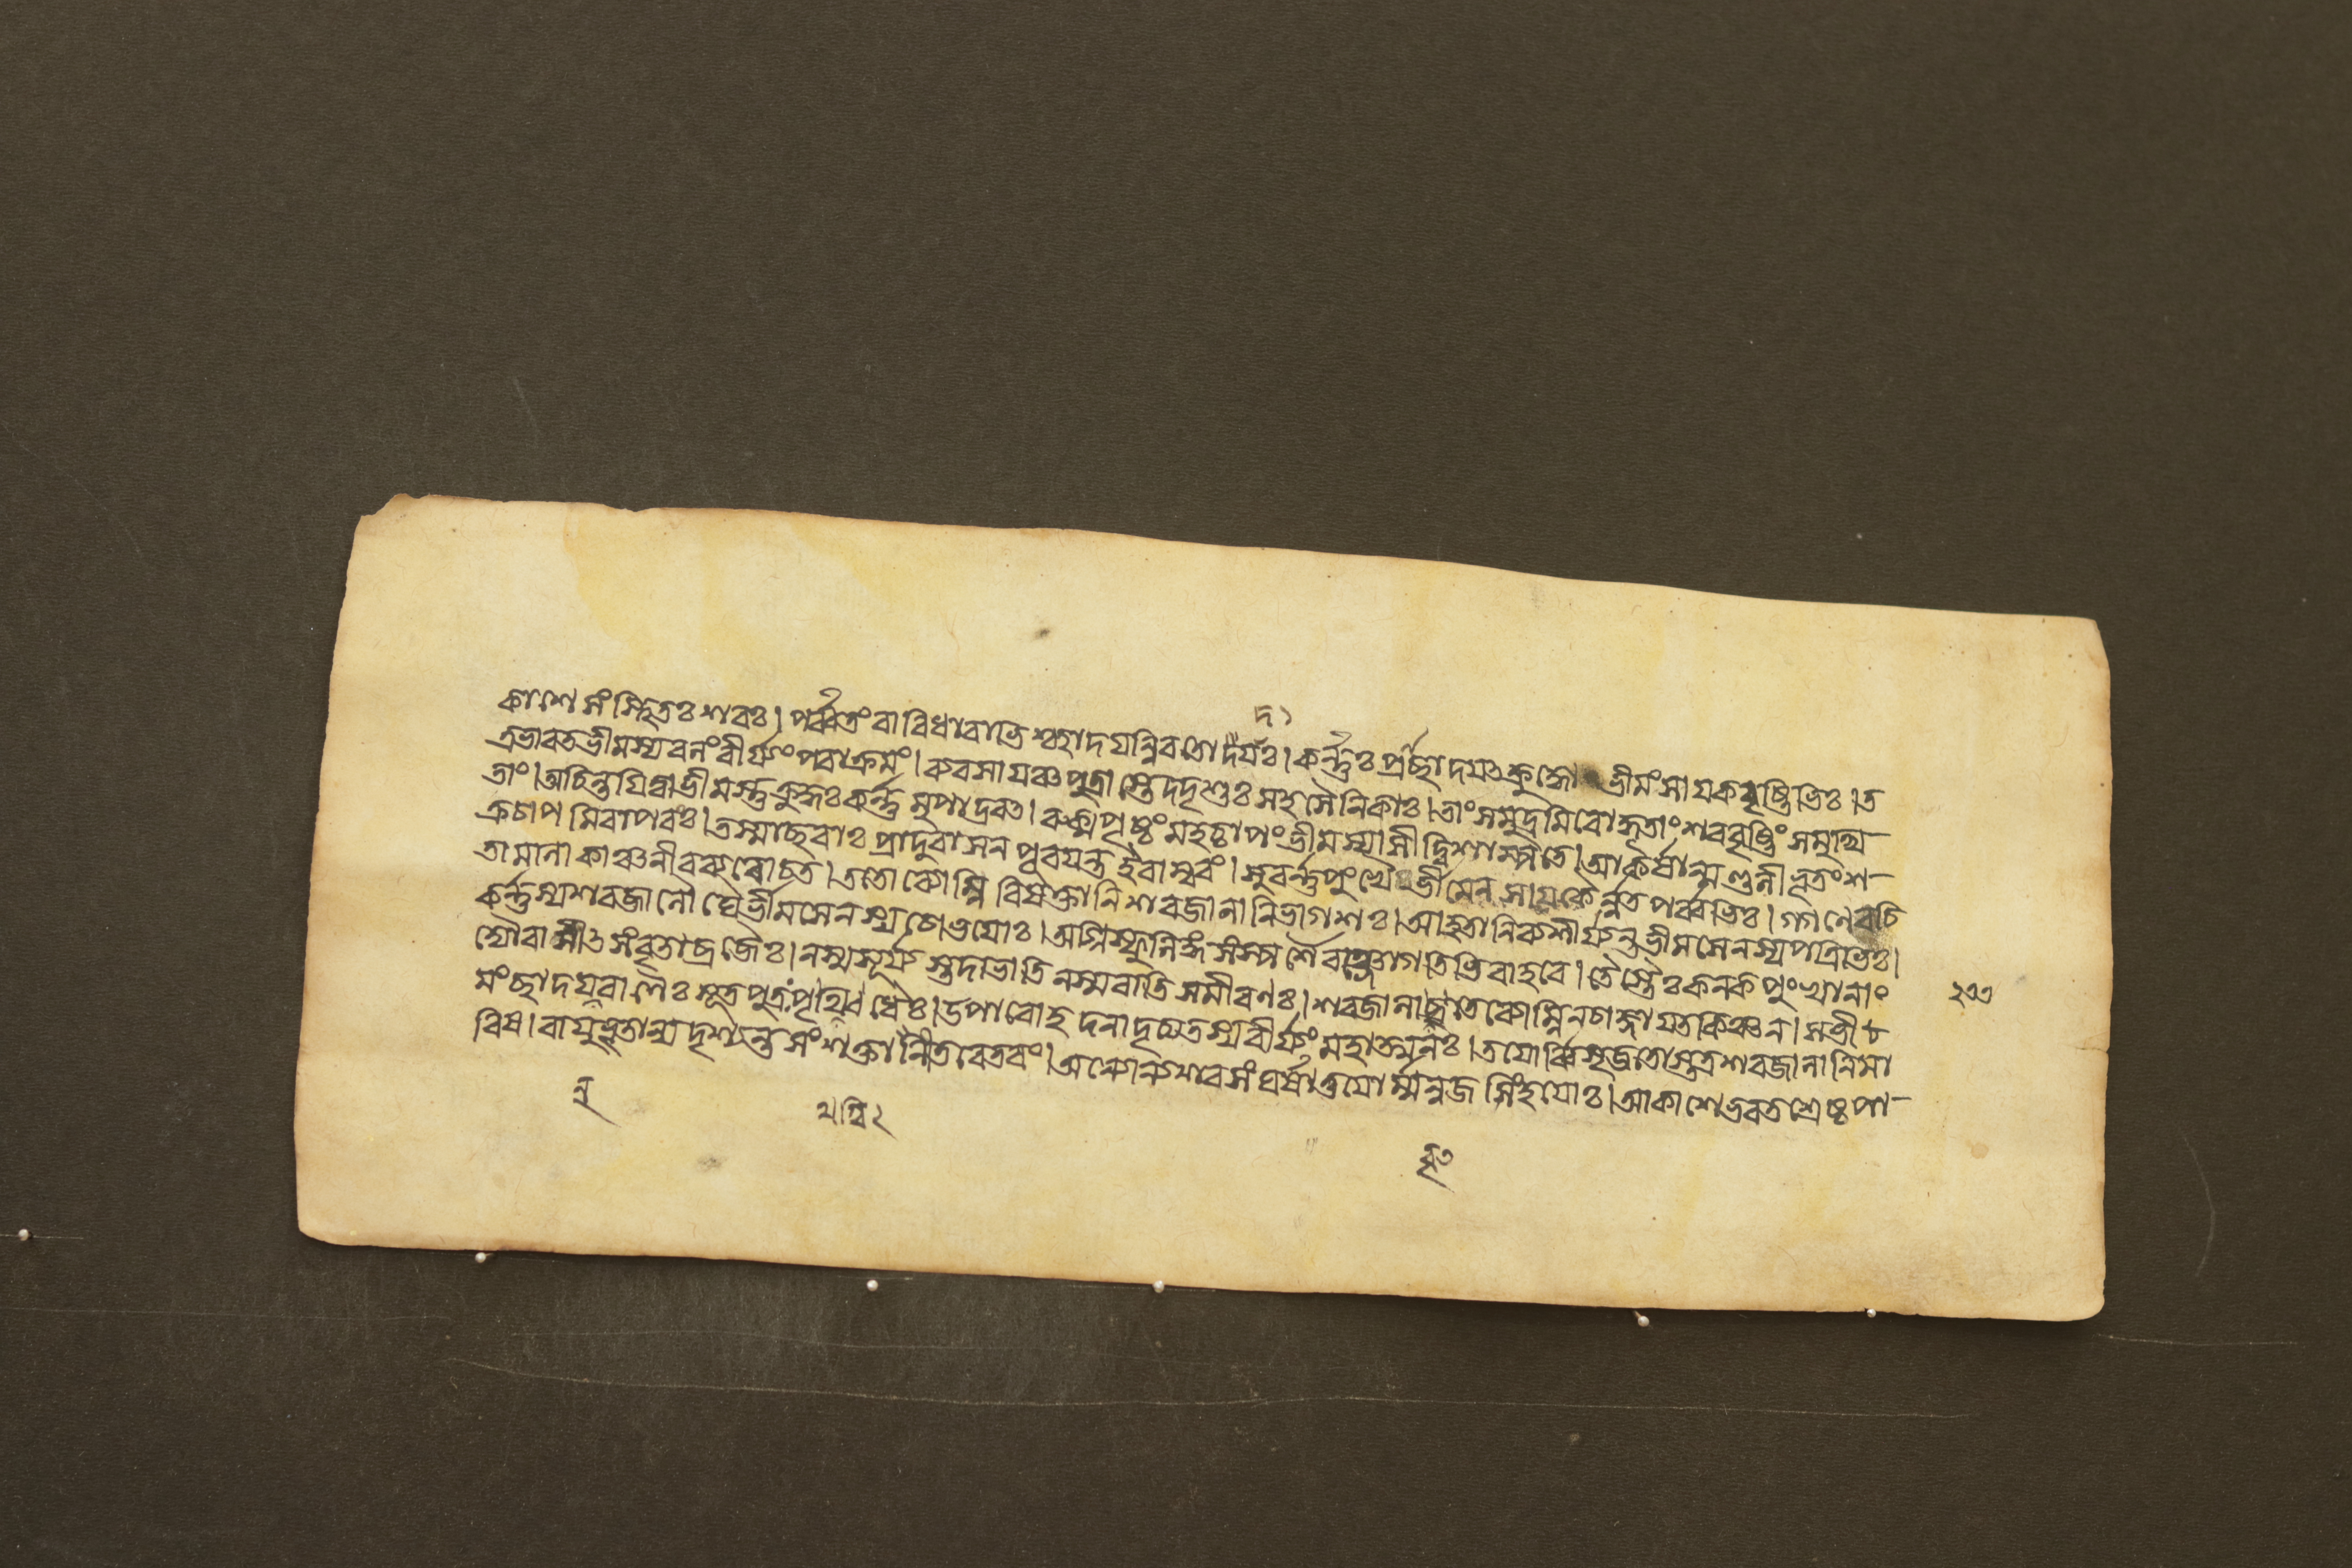 কাশে সংস্থিতঃ শরঃ। পর্ব্বতং বারিধারাভিশ্ছাদয়ন্নিব তোয়দঃ। কর্ণ্ণঃ প্রচ্ছাদয়ৎ ক্রুদ্ধো ভীমং সায়কবৃষ্টিভিঃ। ত
ত্র ভারত ভীমস্য বলং বীর্য্যং পরাক্রমং। ব্যবসায়ঞ্চ পুত্রাস্তে দদৃশুঃ সহসৈনিকাঃ। তাং সমুদ্রমিবোদ্ধূতাং শরবৃষ্টিং সমুত্থি
তাং। অচিন্তয়িত্বা ভীমস্তু ক্রুদ্ধঃ কর্ণ্ণমুপাদ্রবৎ। রুক্মপৃষ্ঠং মহচ্চাপং ভীমস্যাসীদ্বিশাম্পতে। আকর্ষান্মণ্ডলীভূতং শ
ক্রচাপমিবাপরং। তস্মাচ্ছরাঃ প্রাদুরাসন পূরয়ন্ত ইবাম্বরং। সুবর্ণ্ণপুংখৈর্ভীমেন সায়কৈর্ন্নতপর্ব্বভিঃ। গগনে রচি
তা মালা কাঞ্চনী ব্যরোচত। ততো ব্যোম্নি বিষক্তানি শরজালানি ভাগশঃ। আহতানি ব্যশীর্য্যন্ত ভীমসেনস্য পত্রিভিঃ।
কর্ণ্ণস্য শরজালৌঘৈর্ভীমসেনস্য চোভয়োঃ। অগ্নিস্ফুলিঙ্গসংস্পর্শৈরঞ্জোগতিভিরাহবে। তৈস্তৈঃ কনকপুংখানাং
দ্যৌরাসীৎ সংবৃতা ব্রজৈঃ। ন স্ম সূর্য্যস্তদা ভাতি ন স্ম বাতি সমীরণঃ। শরজালাবৃতে ব্যোম্নি ন চাজ্ঞায়ত কিঞ্চন। স ভী
মং ছাদয়ন্ বাণৈঃ সূতপুত্রঃ পৃথগ্বিধৈঃ। উপারোহদনাদৃত্য তস্য বীর্য্যং মহাত্মনঃ। তয়োর্ব্বিসৃজতোস্তত্র শরজালানি মা
রিষ। বায়ুভূতান্যদৃশ্যন্ত সংশক্তানীতরেতরং। অন্যোন্যশরসংঘর্ষাৎ তয়োর্ম্মনুজসিংহয়োঃ। আকাশে ভরতশ্রেষ্ঠ পা